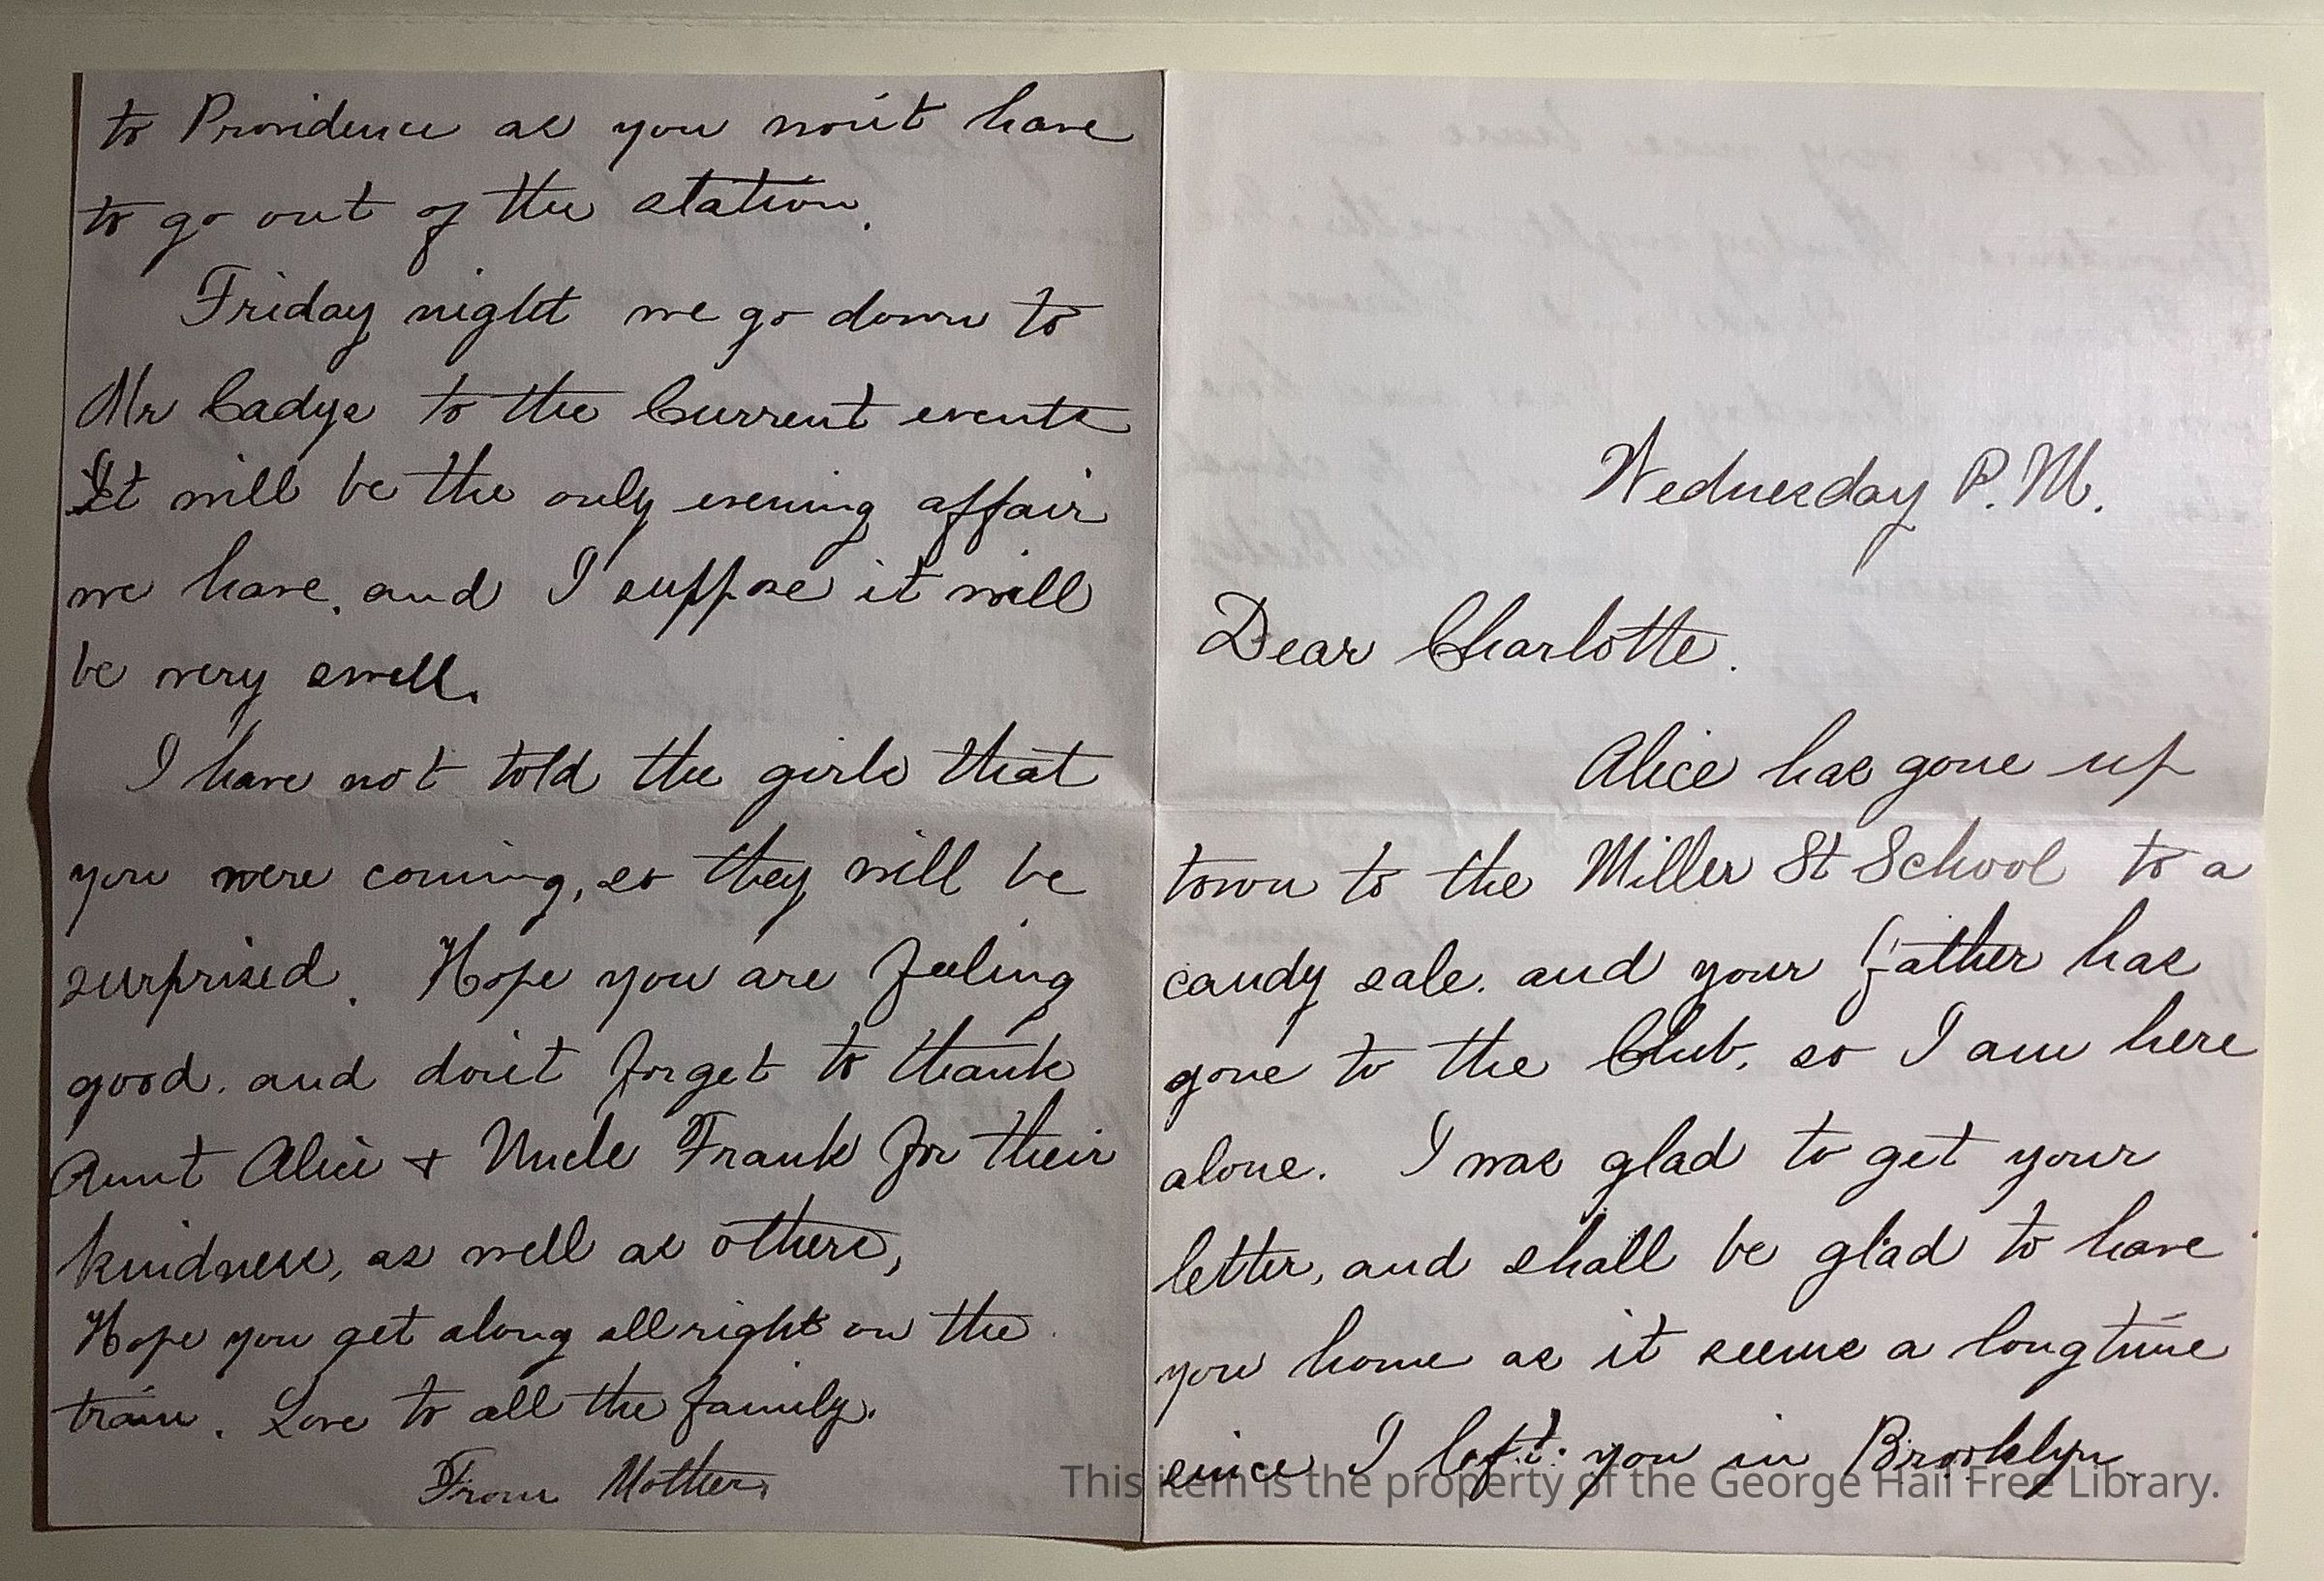 Wednesday P.M.
Dear Charlotte.
Alice has gone up
town to the Miller St School to a
candy sale. and your father has
gone to the Club, so I am here
alone. I was glad to get your
letter, and shall be glad to have
you home as it seems a long time
since I left you in Brooklyn
to Providence as you won't have
to go out of the station.
Friday night we go down to
Mr Cadys to the Current events
It will be the only evening affair
we have, and I suppose it will
be very swell.
I have not told the girls that
you were coming, so they will be
surprised. Hope you are feeling
good. and don't forget to thank
Aunt Alice + Uncle Frank for their
kindness, as well as others,
Hope you get along allright on the
train. Love to all the family.
From Mother.
This item is the property of the George Hail Free Library.